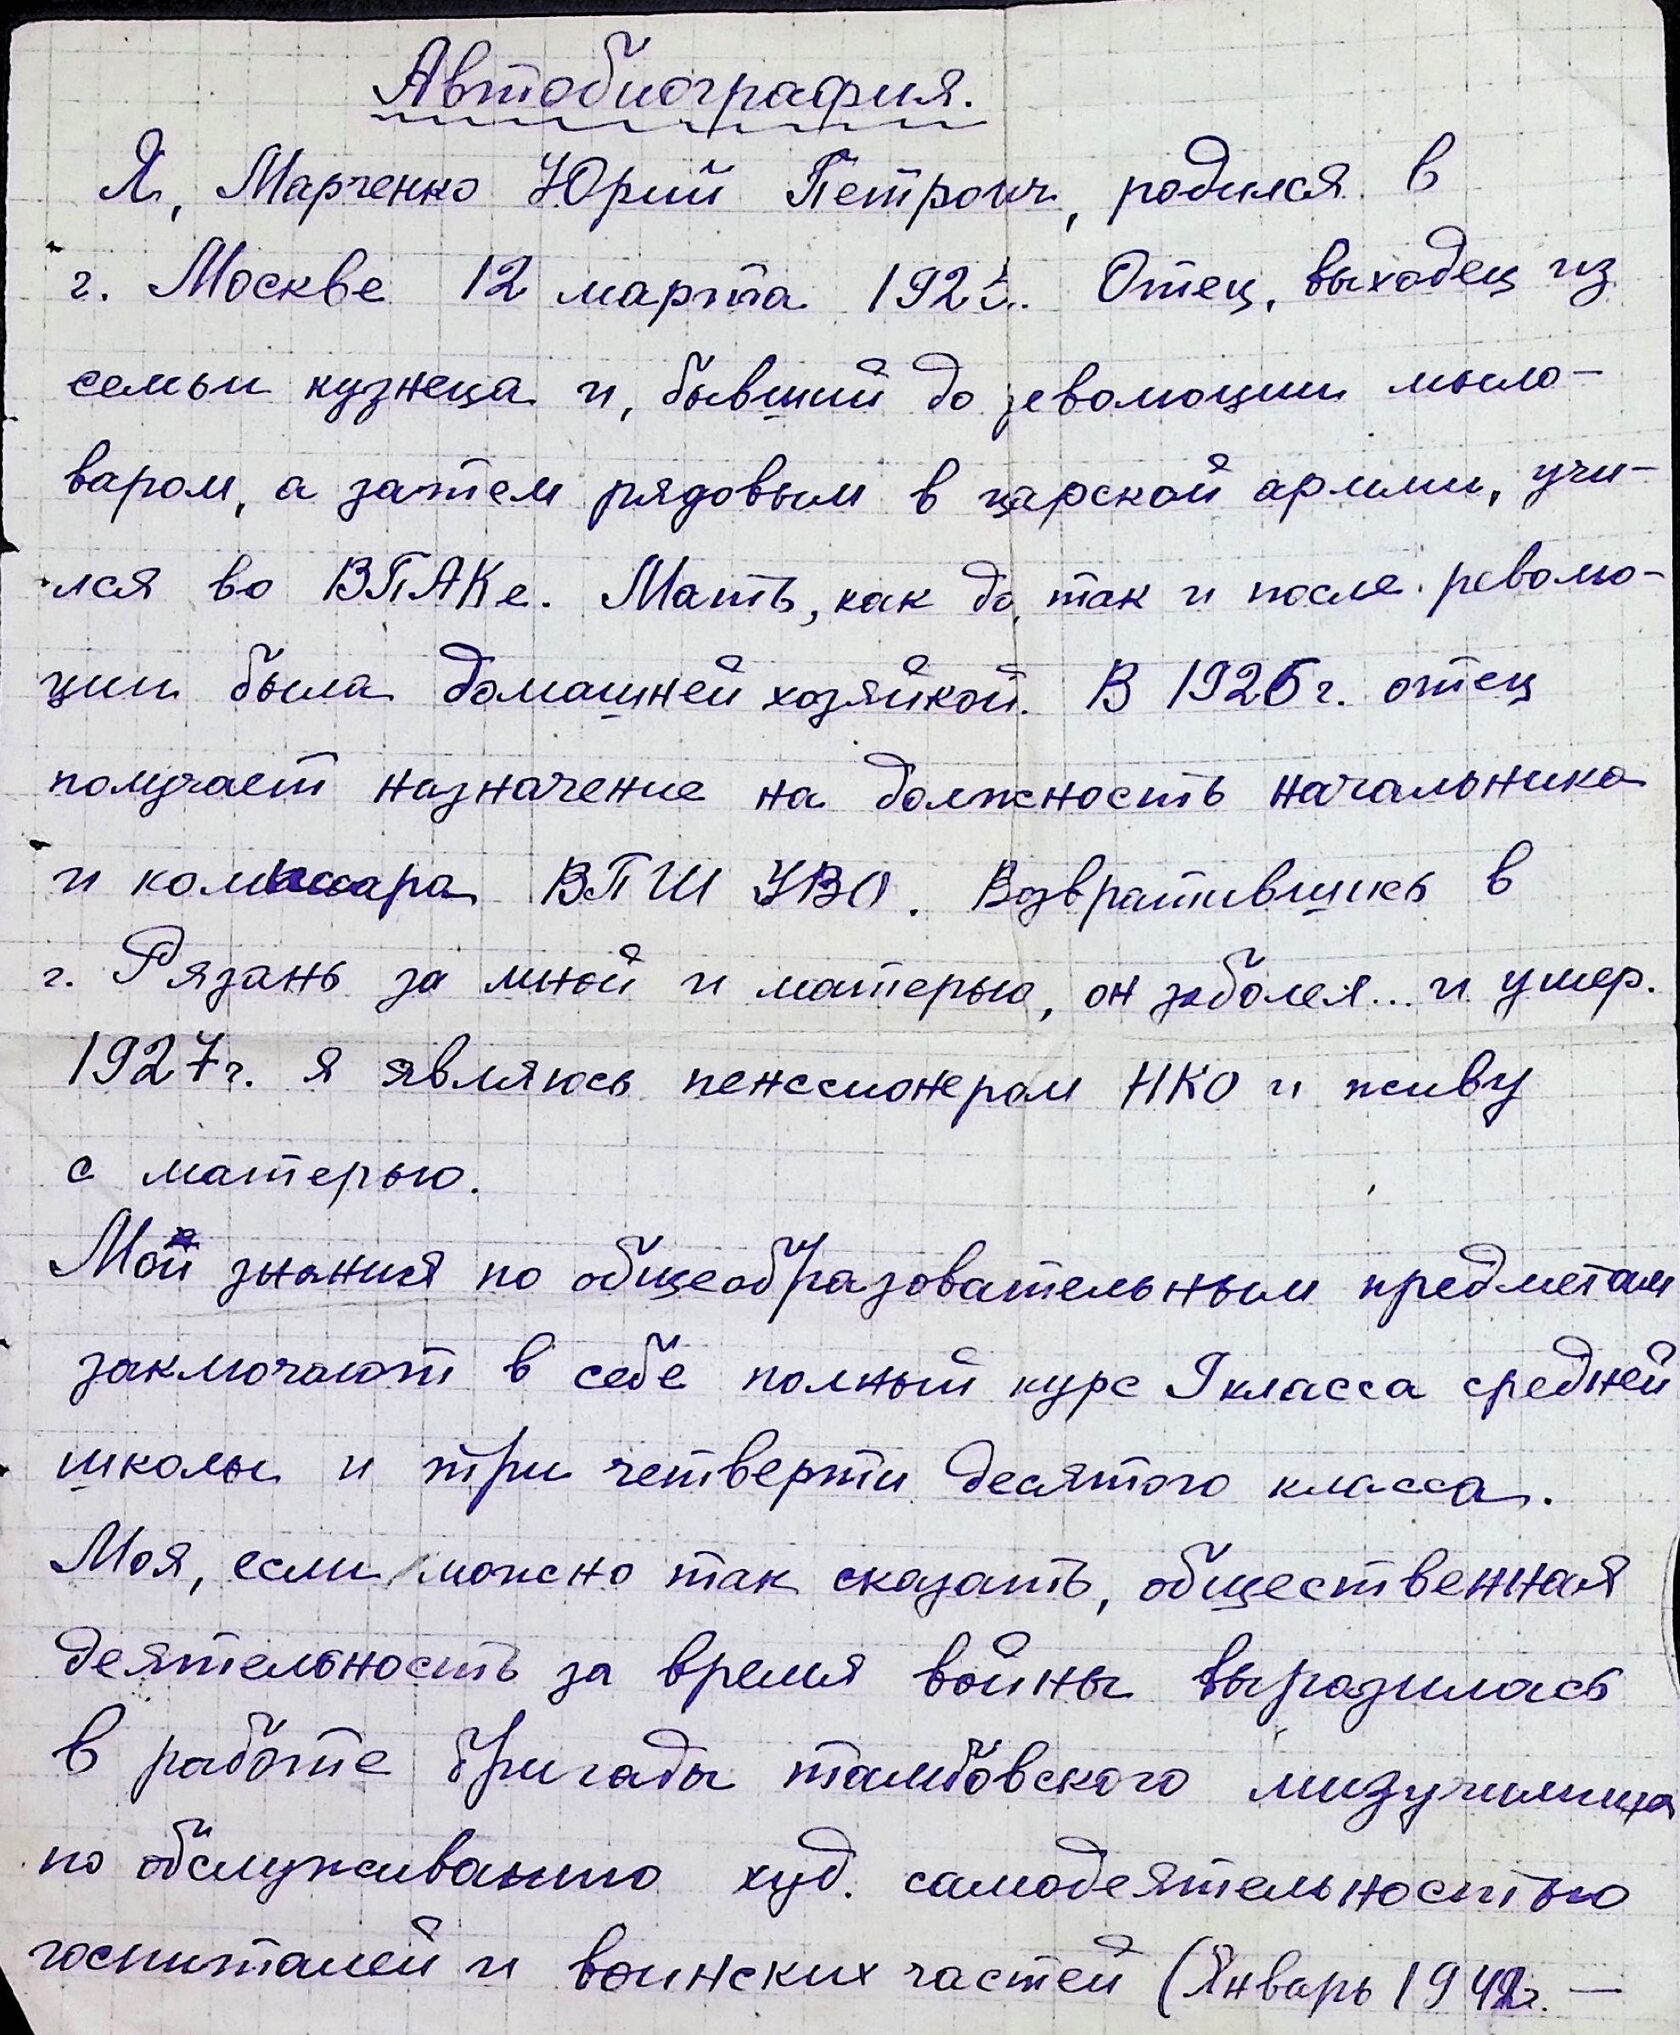 Автобиография.
Я, Марченко Юрий Петрович, родился в
г. Москве 12 марта Отец, выходец из
семьи кузнеца и, бывший до революции мыло-
варом, а затем рядовым в царской армии, учи-
лся во ВПАКе. Мать, как до, так и после револю-
ции была домашней хозяйкой. В 1926г. отец
получает назначение на должность начальника
и комиссара ВПШ УВО. Возвратившись в
г. Рязань за мной и матерью, он заболел... и умер.
1927г. я являюсь пенсионером НКО и живу
с матерью.
Мои знания по общеобразовательным предметам
заключают в себе полный курс 9 класса средней
школы и три четверти десятого класса.
Моя, если можно так сказать, общественная
деятельность за время войны выразилась
в работе бригады тамбовского музучилища
по обслуживанию худ. самодеятельностью
госпиталей и воинских частей (Январь 1942г. —